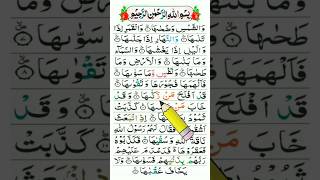 بِسْمِ اللهِ الرَّحْمٰنِ الرَّحِيْمِ
وَالشَّمْسِ وَضُحٰىهَا وَالْقَمَرِ اِذَا
تَلٰىهَا وَالنَّهَارِ اِذَا جَلّٰىهَا
وَالَّيْلِ اِذَا يَغْشٰىهَا وَالسَّمَآءِ
وَمَا بَنٰىهَا وَالْاَرْضِ وَمَا
طَحٰىهَا وَنَفْسٍ وَّمَا سَوّٰىهَا
فَاَلْهَمَهَا فُجُوْرَهَا وَتَقْوٰىهَا
قَدْ اَفْلَحَ مَنْ زَكّٰىهَا وَقَدْ
خَابَ مَنْ دَسّٰىهَا كَذَّبَتْ
ثَمُوْدُ بِطَغْوٰىهَا اِذِ انْۢبَعَثَ
اَشْقٰىهَا فَقَالَ لَهُمْ رَسُوْلُ اللهِ
نَاقَةَ اللهِ وَسُقْيٰهَا فَكَذَّبُوْهُ
فَعَقَرُوْهَا فَدَمْدَمَ عَلَيْهِمْ
رَبُّهُمْ بِذَنْۢبِهِمْ فَسَوّٰىهَا وَلَا
يَخَافُ عُقْبٰهَا